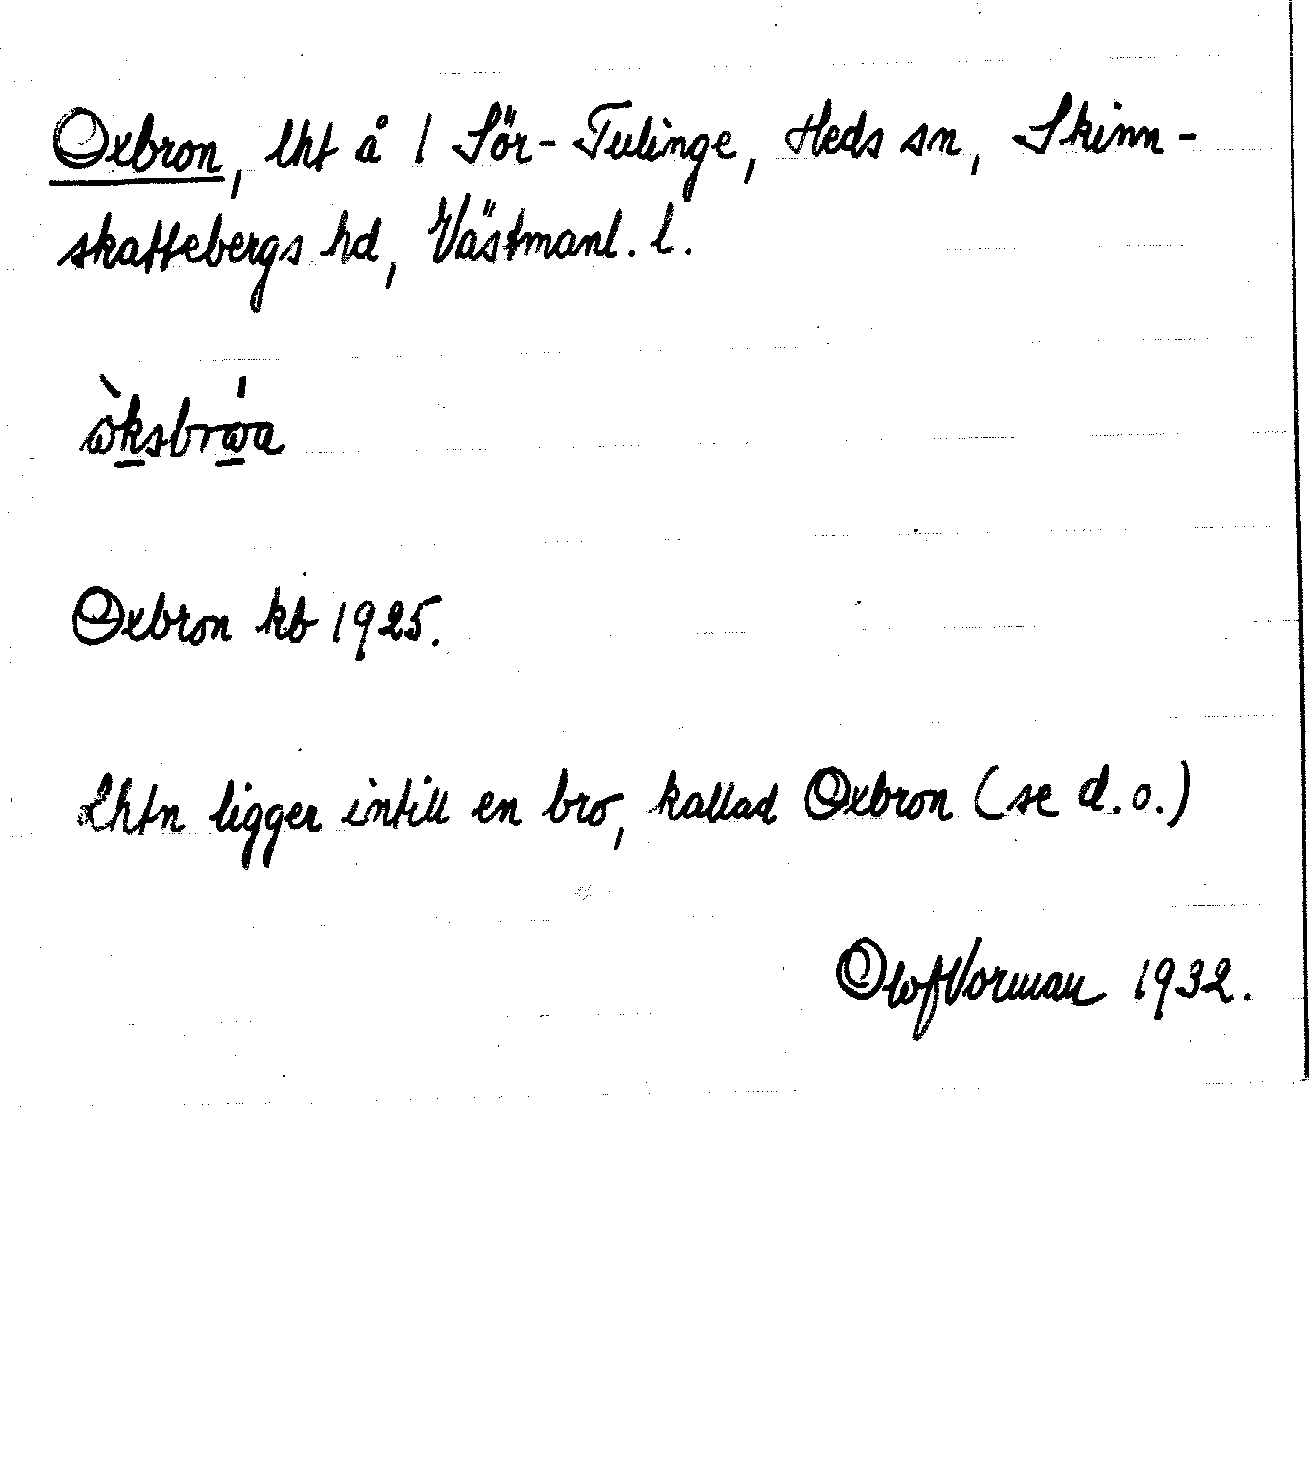 Oxbron, lht å 1 Sör-Tulinge, Heds sn, Skinn-
skattebergs hd, Västmanl. l.
Oxbron kb 1925.
Lhtn ligger intill en bro, kallad Oxbron (se d.o.)
Olof Vorman 1932.